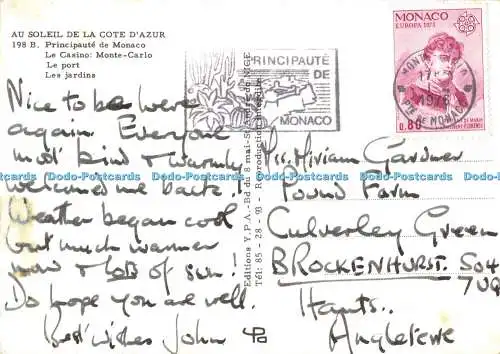 AU SOLEIL DE LA COTE D'AZUR
198 B. Principauté de Monaco
Le Casino: Monte-Carlo
Le port
Les jardins
Nice to be here
again Everyone
most kind & warmly
welcomed me back.
Weather began cool
but much warmer
now & LOTS of sun!
Do hope you are well.
Best wishes John
Editions Y.P.A. - Bd du 8 mai - St-André de NICE
Tél: 85-28-93 - Reproduction interdite
PRINCIPAUTÉ
DE
MONACO
MONACO
EUROPA 1975
0,80
MONTE-CARLO
1976
PTE DE MONACO
Miriam Gardner
Pound Farm
Culverley Green
BROCKENHURST. SO4
7UQ
Hants..
Angleterre
Dodo-Postcards Dodo-Postcards Dodo-Postcards Dodo-Postcards